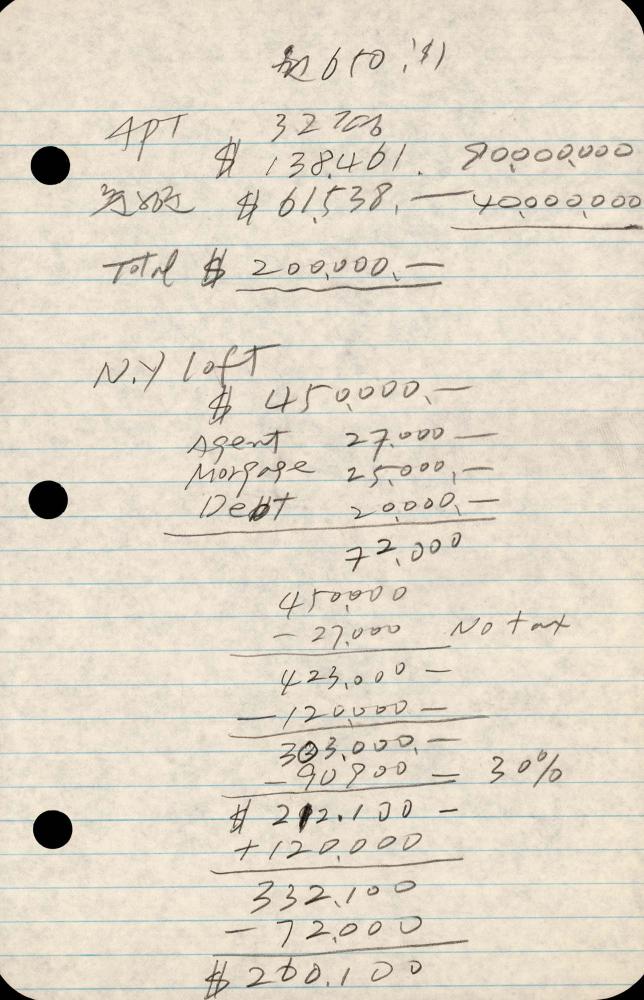 650:$1
APT
$ 138,461. 90,000,000
$ 61,538.— 40,000,000
Total $ 200,000.—
N.Y loft
$ 450,000.—
Agent 27,000—
Morgage 25,000.—
Debt 20,000.—
72,000
450,000
- 27,000 No tax
423,000 —
—120,000 —
303,000.—
- 90900 — 30%
$ 212.100 —
+120,000
332,100
- 72,000
$ 260.100